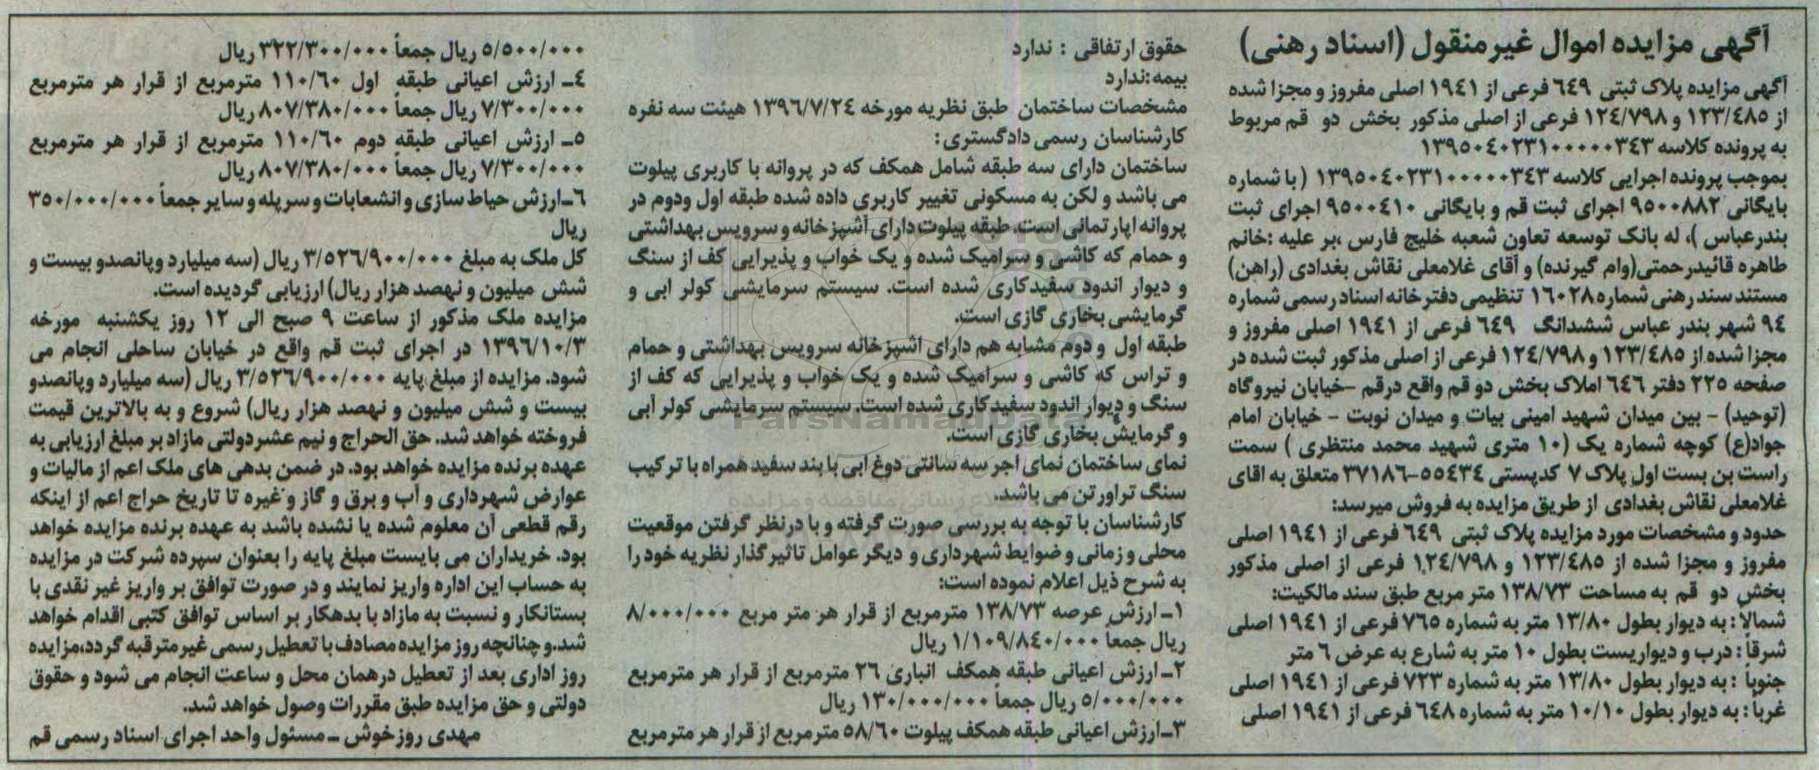 آگهی مزایده اموال غیرمنقول (اسناد رهنی)
آگهی مزایده پلاک ثبتی ٦٤٩ فرعی از ١٩٤١ اصلی مفروز و مجزا شده
از ١٢٣/٤٨٥ و ١٢٤/٧٩٨ فرعی از اصلی مذکور بخش دو قم مربوط
به پرونده کلاسه ١٣٩٥٠٤٠٢٣١٠٠٠٠٠٣٤٣
بموجب پرونده اجرایی کلاسه ١٣٩٥٠٤٠٢٣١٠٠٠٠٠٣٤٣ (با شماره
بایگانی ٩٥٠٠٨٨٢ اجرای ثبت قم و بایگانی ٩٥٠٠٤١٠ اجرای ثبت
بندرعباس )، له بانک توسعه تعاون شعبه خلیج فارس ،بر علیه :خانم
طاهره قائیدرحمتی(وام گیرنده) و آقای غلامعلی نقاش بغدادی (راهن)
مستند سند رهنی شماره ١٦٠٢٨ تنظیمی دفترخانه اسناد رسمی شماره
٩٤ شهر بندر عباس ششدانگ ٦٤٩ فرعی از ١٩٤١ اصلی مفروز و
مجزا شده از ١٢٣/٤٨٥ و ١٢٤/٧٩٨ فرعی از اصلی مذکور ثبت شده در
صفحه ٢٢٥ دفتر ٦٤٦ املاک بخش دو قم واقع درقم –خیابان نیروگاه
(توحید) – بین میدان شهید امینی بیات و میدان نوبت – خیابان امام
جواد(ع) کوچه شماره یک (١٠ متری شهید محمد منتظری ) سمت
راست بن بست اول پلاک ٧ کدپستی ٥٥٤٣٤–٣٧١٨٦ متعلق به اقای
غلامعلی نقاش بغدادی از طریق مزایده به فروش میرسد:
حدود و مشخصات مورد مزایده پلاک ثبتی ٦٤٩ فرعی از ١٩٤١ اصلی
مفروز و مجزا شده از ١٢٣/٤٨٥ و ١٢٤/٧٩٨ فرعی از اصلی مذکور
بخش دو قم به مساحت ١٣٨/٧٣ متر مربع طبق سند مالکیت:
شمالاً : به دیوار بطول ١٣/٨٠ متر به شماره ٧٦٥ فرعی از ١٩٤١ اصلی
شرقاً : درب و دیواریست بطول ١٠ متر به شارع به عرض ٦ متر
جنوباً : به دیوار بطول ١٣/٨٠ متر به شماره ٧٢٣ فرعی از ١٩٤١ اصلی
غرباً : به دیوار بطول ١٠/١٠ متر به شماره ٦٤٨ فرعی از ١٩٤١ اصلی
حقوق ارتفاقی : ندارد
بیمه:ندارد
مشخصات ساختمان طبق نظریه مورخه ١٣٩٦/٧/٢٤ هیئت سه نفره
کارشناسان رسمی دادگستری:
ساختمان دارای سه طبقه شامل همکف که در پروانه با کاربری پیلوت
می باشد و لکن به مسکونی تغییر کاربری داده شده طبقه اول ودوم در
پروانه اپارتمانی است. طبقه پیلوت دارای آشپزخانه و سرویس بهداشتی
و حمام که کاشی و سرامیک شده و یک خواب و پذیرایی کف از سنگ
و دیوار اندود سفیدکاری شده است. سیستم سرمایشی کولر ابی و
گرمایشی بخاری گازی است.
طبقه اول و دوم مشابه هم دارای اشپزخانه سرویس بهداشتی و حمام
و تراس که کاشی و سرامیک شده و یک خواب و پذیرایی که کف از
سنگ و دیوار اندود سفیدکاری شده است. سیستم سرمایشی کولر آبی
و گرمایش بخاری گازی است.
نمای ساختمان نمای اجر سه سانتی دوغ ابی با بند سفید همراه با ترکیب
سنگ تراورتن می باشد.
کارشناسان با توجه به بررسی صورت گرفته و با درنظر گرفتن موقعیت
محلی و زمانی و ضوایط شهرداری و دیگر عوامل تاثیرگذار نظریه خود را
به شرح ذیل اعلام نموده است:
١ـ ارزش عرصه ١٣٨/٧٣ مترمربع از قرار هر متر مربع ٨/٠٠٠/٠٠٠
ریال جمعاً ١/١٠٩/٨٤٠/٠٠٠ ریال
٢ـ ارزش اعیانی طبقه همکف انباری ٢٦ مترمربع از قرار هر مترمربع
٥/٠٠٠/٠٠٠ ریال جمعاً ١٣٠/٠٠٠/٠٠٠ ریال
٣ـ ارزش اعیانی طبقه همکف پیلوت ٥٨/٦٠ مترمربع از قرار هر مترمربع
٥/٥٠٠/٠٠٠ ریال جمعاً ٣٢٢/٣٠٠/٠٠٠ ریال
٤ـ ارزش اعیانی طبقه اول ١١٠/٦٠ مترمربع از قرار هر مترمربع
٧/٣٠٠/٠٠٠ ریال جمعاً ٨٠٧/٣٨٠/٠٠٠ ریال
٥ـ ارزش اعیانی طبقه دوم ١١٠/٦٠ مترمربع از قرار هر مترمربع
٧/٣٠٠/٠٠٠ ریال جمعاً ٨٠٧/٣٨٠/٠٠٠ ریال
٦ـ ارزش حیاط سازی و انشعابات و سرپله و سایر جمعاً ٣٥٠/٠٠٠/٠٠٠
ریال
کل ملک به مبلغ ٣/٥٢٦/٩٠٠/٠٠٠ ریال (سه میلیارد وپانصدو بیست و
شش میلیون و نهصد هزار ریال) ارزیابی گردیده است.
مزایده ملک مذکور از ساعت ٩ صبح الی ١٢ روز یکشنبه مورخه
١٣٩٦/١٠/٣ در اجرای ثبت قم واقع در خیابان ساحلی انجام می
شود. مزایده از مبلغ پایه ٣/٥٢٦/٩٠٠/٠٠٠ ریال (سه میلیارد وپانصدو
بیست و شش میلیون و نهصد هزار ریال) شروع و به بالاترین قیمت
فروخته خواهد شد. حق الحراج و نیم عشردولتی مازاد بر مبلغ ارزیابی به
عهده برنده مزایده خواهد بود. در ضمن بدهی های ملک اعم از مالیات و
عوارض شهرداری و آب و برق و گاز و غیره تا تاریخ حراج اعم از اینکه
رقم قطعی آن معلوم شده یا نشده باشد به عهده برنده مزایده خواهد
بود. خریداران می بایست مبلغ پایه را بعنوان سپرده شرکت در مزایده
به حساب این اداره واریز نمایند و در صورت توافق بر واریز غیر نقدی با
بستانکار و نسبت به مازاد با بدهکار بر اساس توافق کتبی اقدام خواهد
شد.و چنانچه روز مزایده مصادف با تعطیل رسمی غیرمترقبه گردد،مزایده
روز اداری بعد از تعطیل درهمان محل و ساعت انجام می شود و حقوق
دولتی و حق مزایده طبق مقررات وصول خواهد شد.
مهدی روزخوش ـ مسئول واحد اجرای اسناد رسمی قم
ParsNamadData